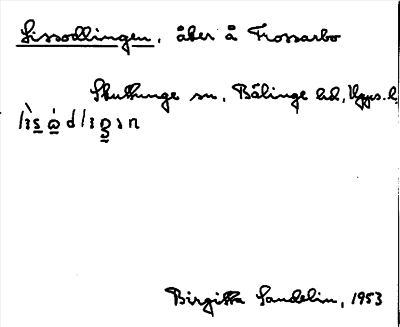 Lissodlingen, åker å Frossarbo
Skuttunge sn, Bälinge hd, Upps. l.
Birgitta Sandelin, 1953